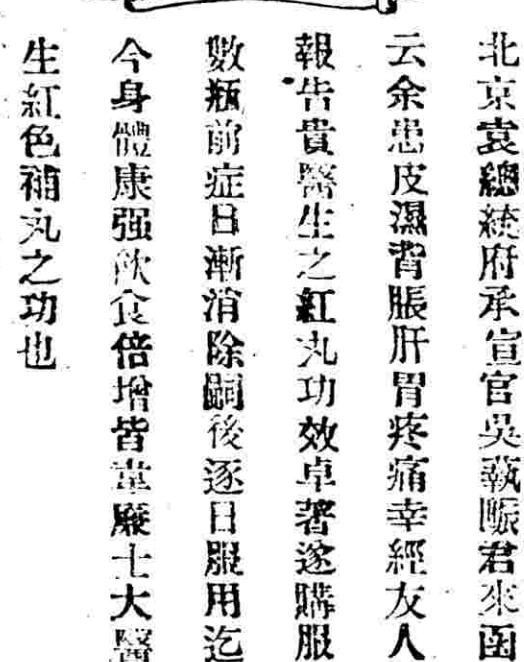 北京袁總統府承宣官吳執賑君來函
云余患皮濕背脹肝胃疼痛幸經友人
報告貴醫生之紅丸功效卓著遂購服
數瓶前症日漸消除嗣後逐日服用迄
今身體康强飲食倍增皆韋廉士大醫
生紅色補丸之功也